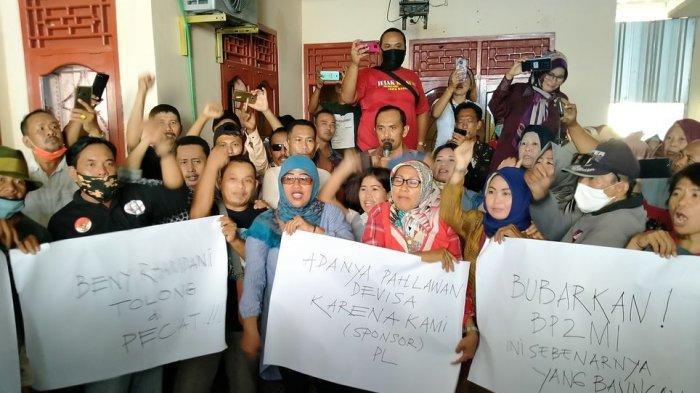 BENY RHAMDANI
TOLONG
di
PECAT !!!
ADANYA PAHLAWAN
DEVISA
KARENA KAMI
(SPONSOR)
PL
BUBARKAN !
BP2MI
INI SEBENARNYA
YANG